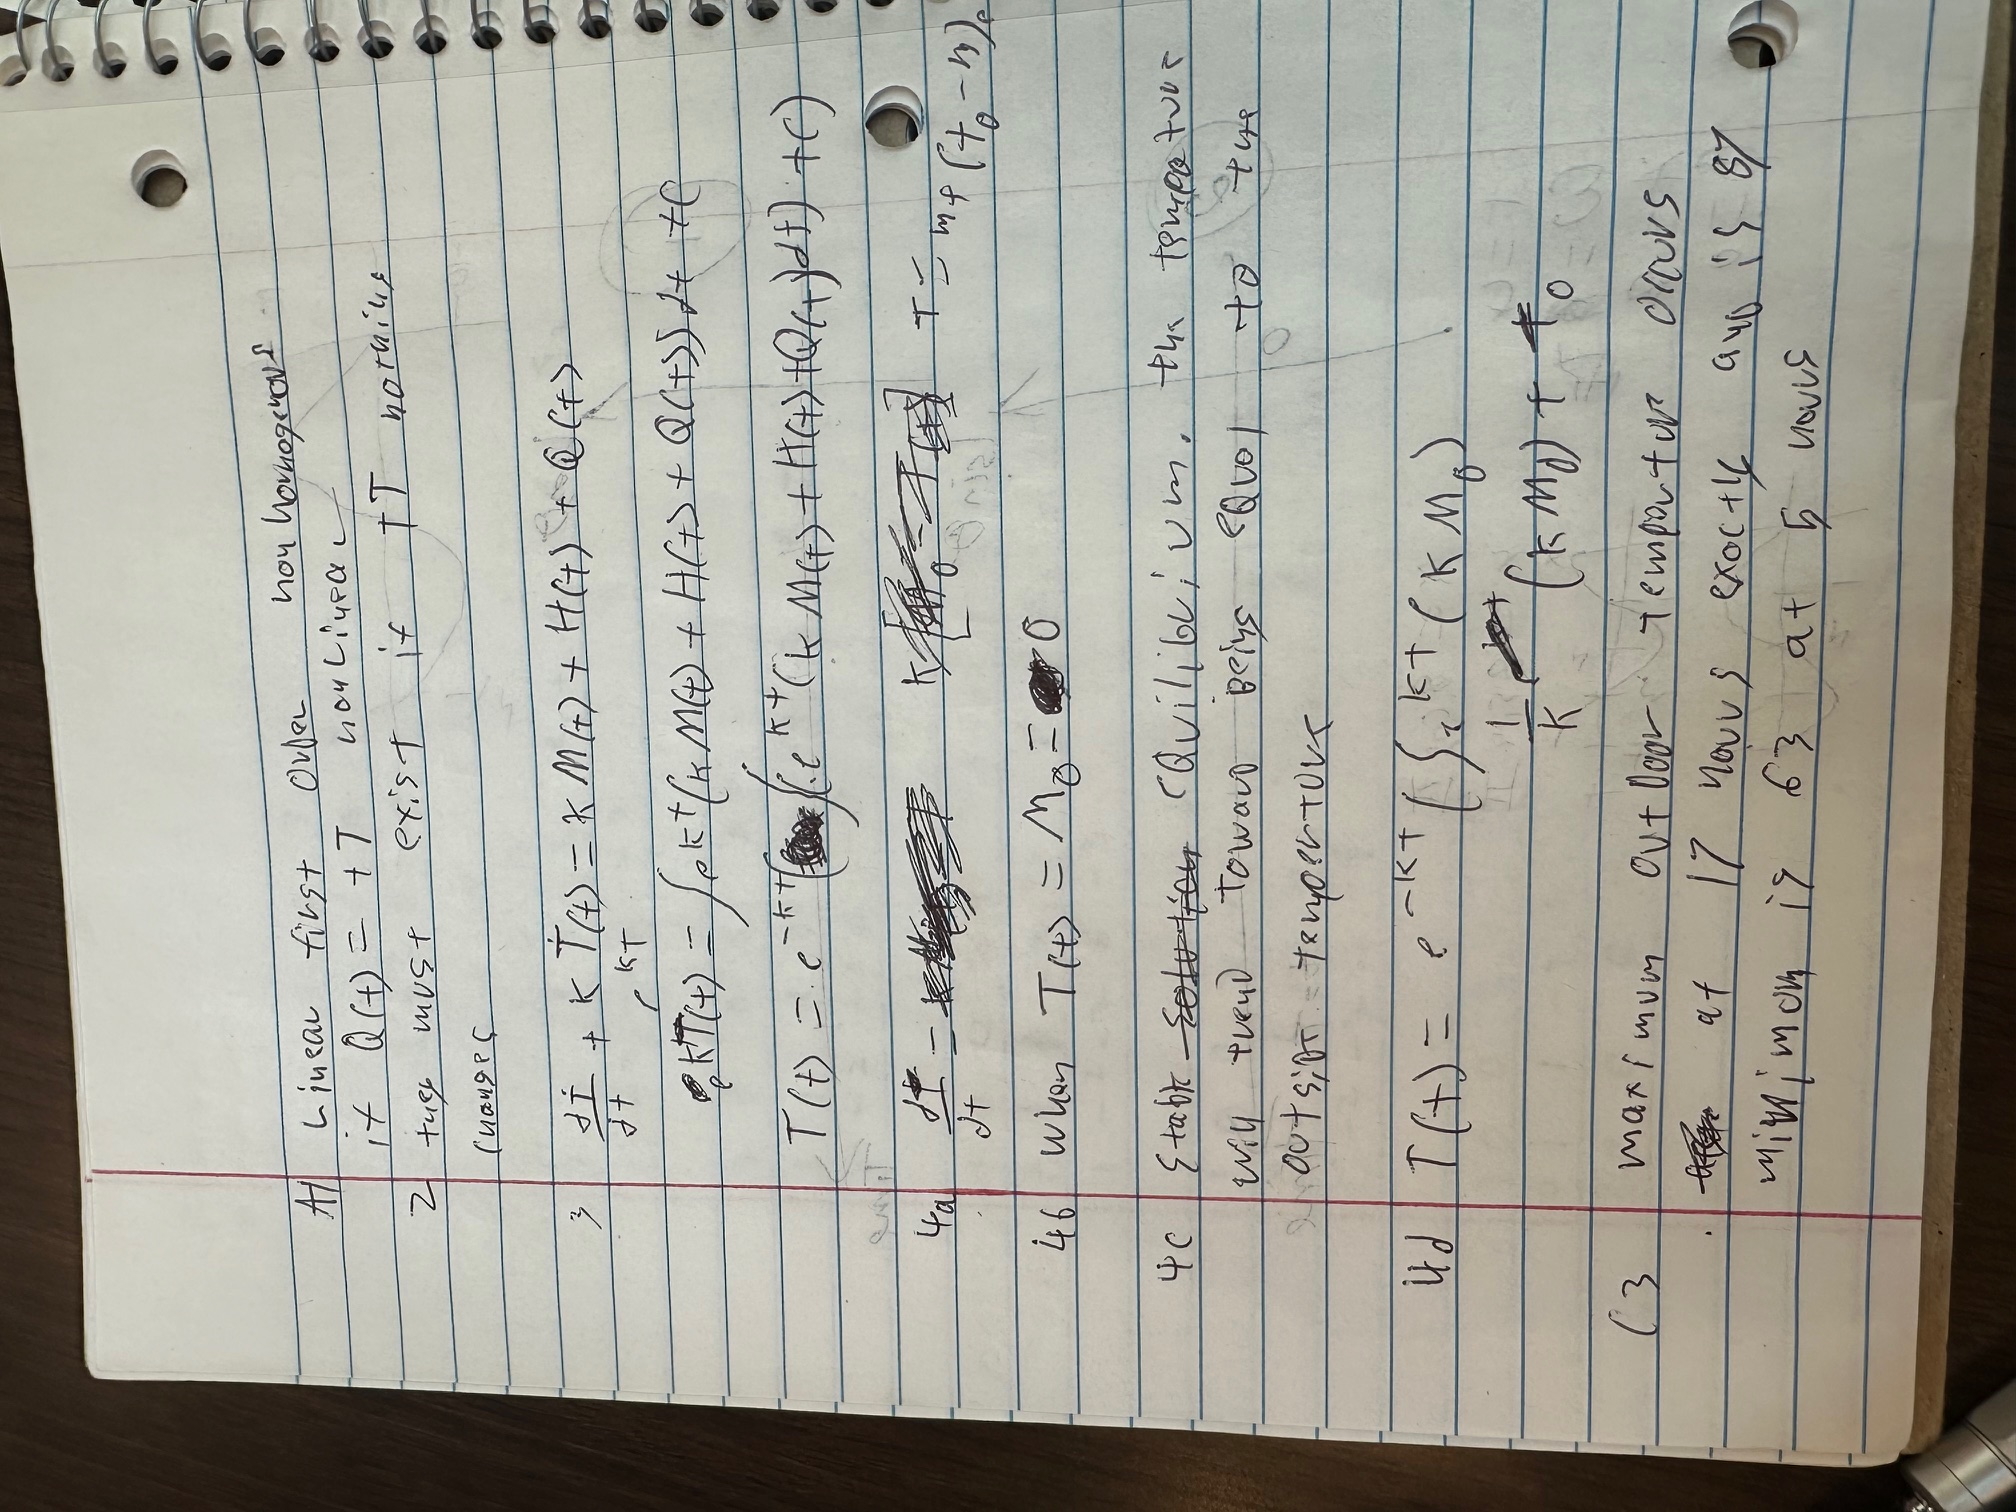 A1 Linear first order nonhomogenous
if Q(t) = +T nonlinear
2 they must exist if +T nothing
changes
3 dT/dt + K T(t) = K M(t) + H(t) + Q(t)
e^KT
e^KT(t) = ∫e^kt(k M(t) + H(t) + Q(t)) dt + C
T(t) = e^-kt(∫(e^kt(k M(t) + H(t) + Q(t)dt) + C)
4a dT/dt = T = m + (t0 - m)e
4b when T(t) = M0 = 0
4c stable equilibrium. the temperature
will trend toward being equal to the
outside temperture
4d T(t) = e^-kt (∫e^kt (K M0)
1/K (k M0) + t0
C3 maximum outdoor temperture occurs
at 17 hours exactly and is 87
minimum is 63 at 5 hours